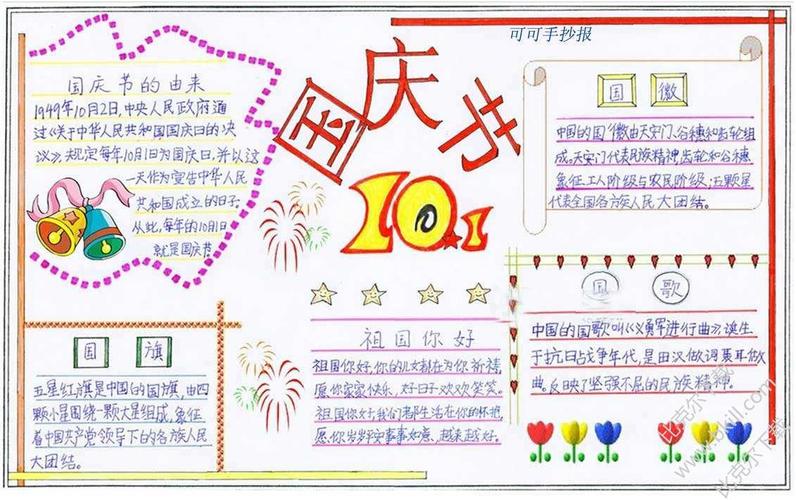 可可手抄报
国庆节
10.1
国庆节的由来
1949年10月2日,中央人民政府通
过《关于中华人民共和国国庆日的决
议》,规定每年10月1日为国庆日,并以这
一天作为宣告中华人民
共和国成立的日子.
从此,每年的10月1日
就是国庆节
国徽
中国的国徽由天安门、谷穗和齿轮组
成。天安门代表民族精神齿轮和谷穗
象征工人阶级与农民阶级;五颗星
代表全国各族人民大团结。
国旗
五星红旗是中国的国旗,由四
颗小星围绕一颗大星组成,象征
着中国共产党领导下的各族人民
大团结。
祖国你好
祖国你好,你的儿女都在为你祈祷,
愿你家家快乐,好日子欢欢笑笑。
祖国你好,我们都生活在你的怀抱,
愿你岁岁平安事事如意,越来越好。
国歌
中国的国歌叫《义勇军进行曲》诞生
于抗日战争年代,是田汉做词聂耳做
曲,反映了坚强不屈的民族精神。
比克尔下载
www.bkill.com
比克尔下载